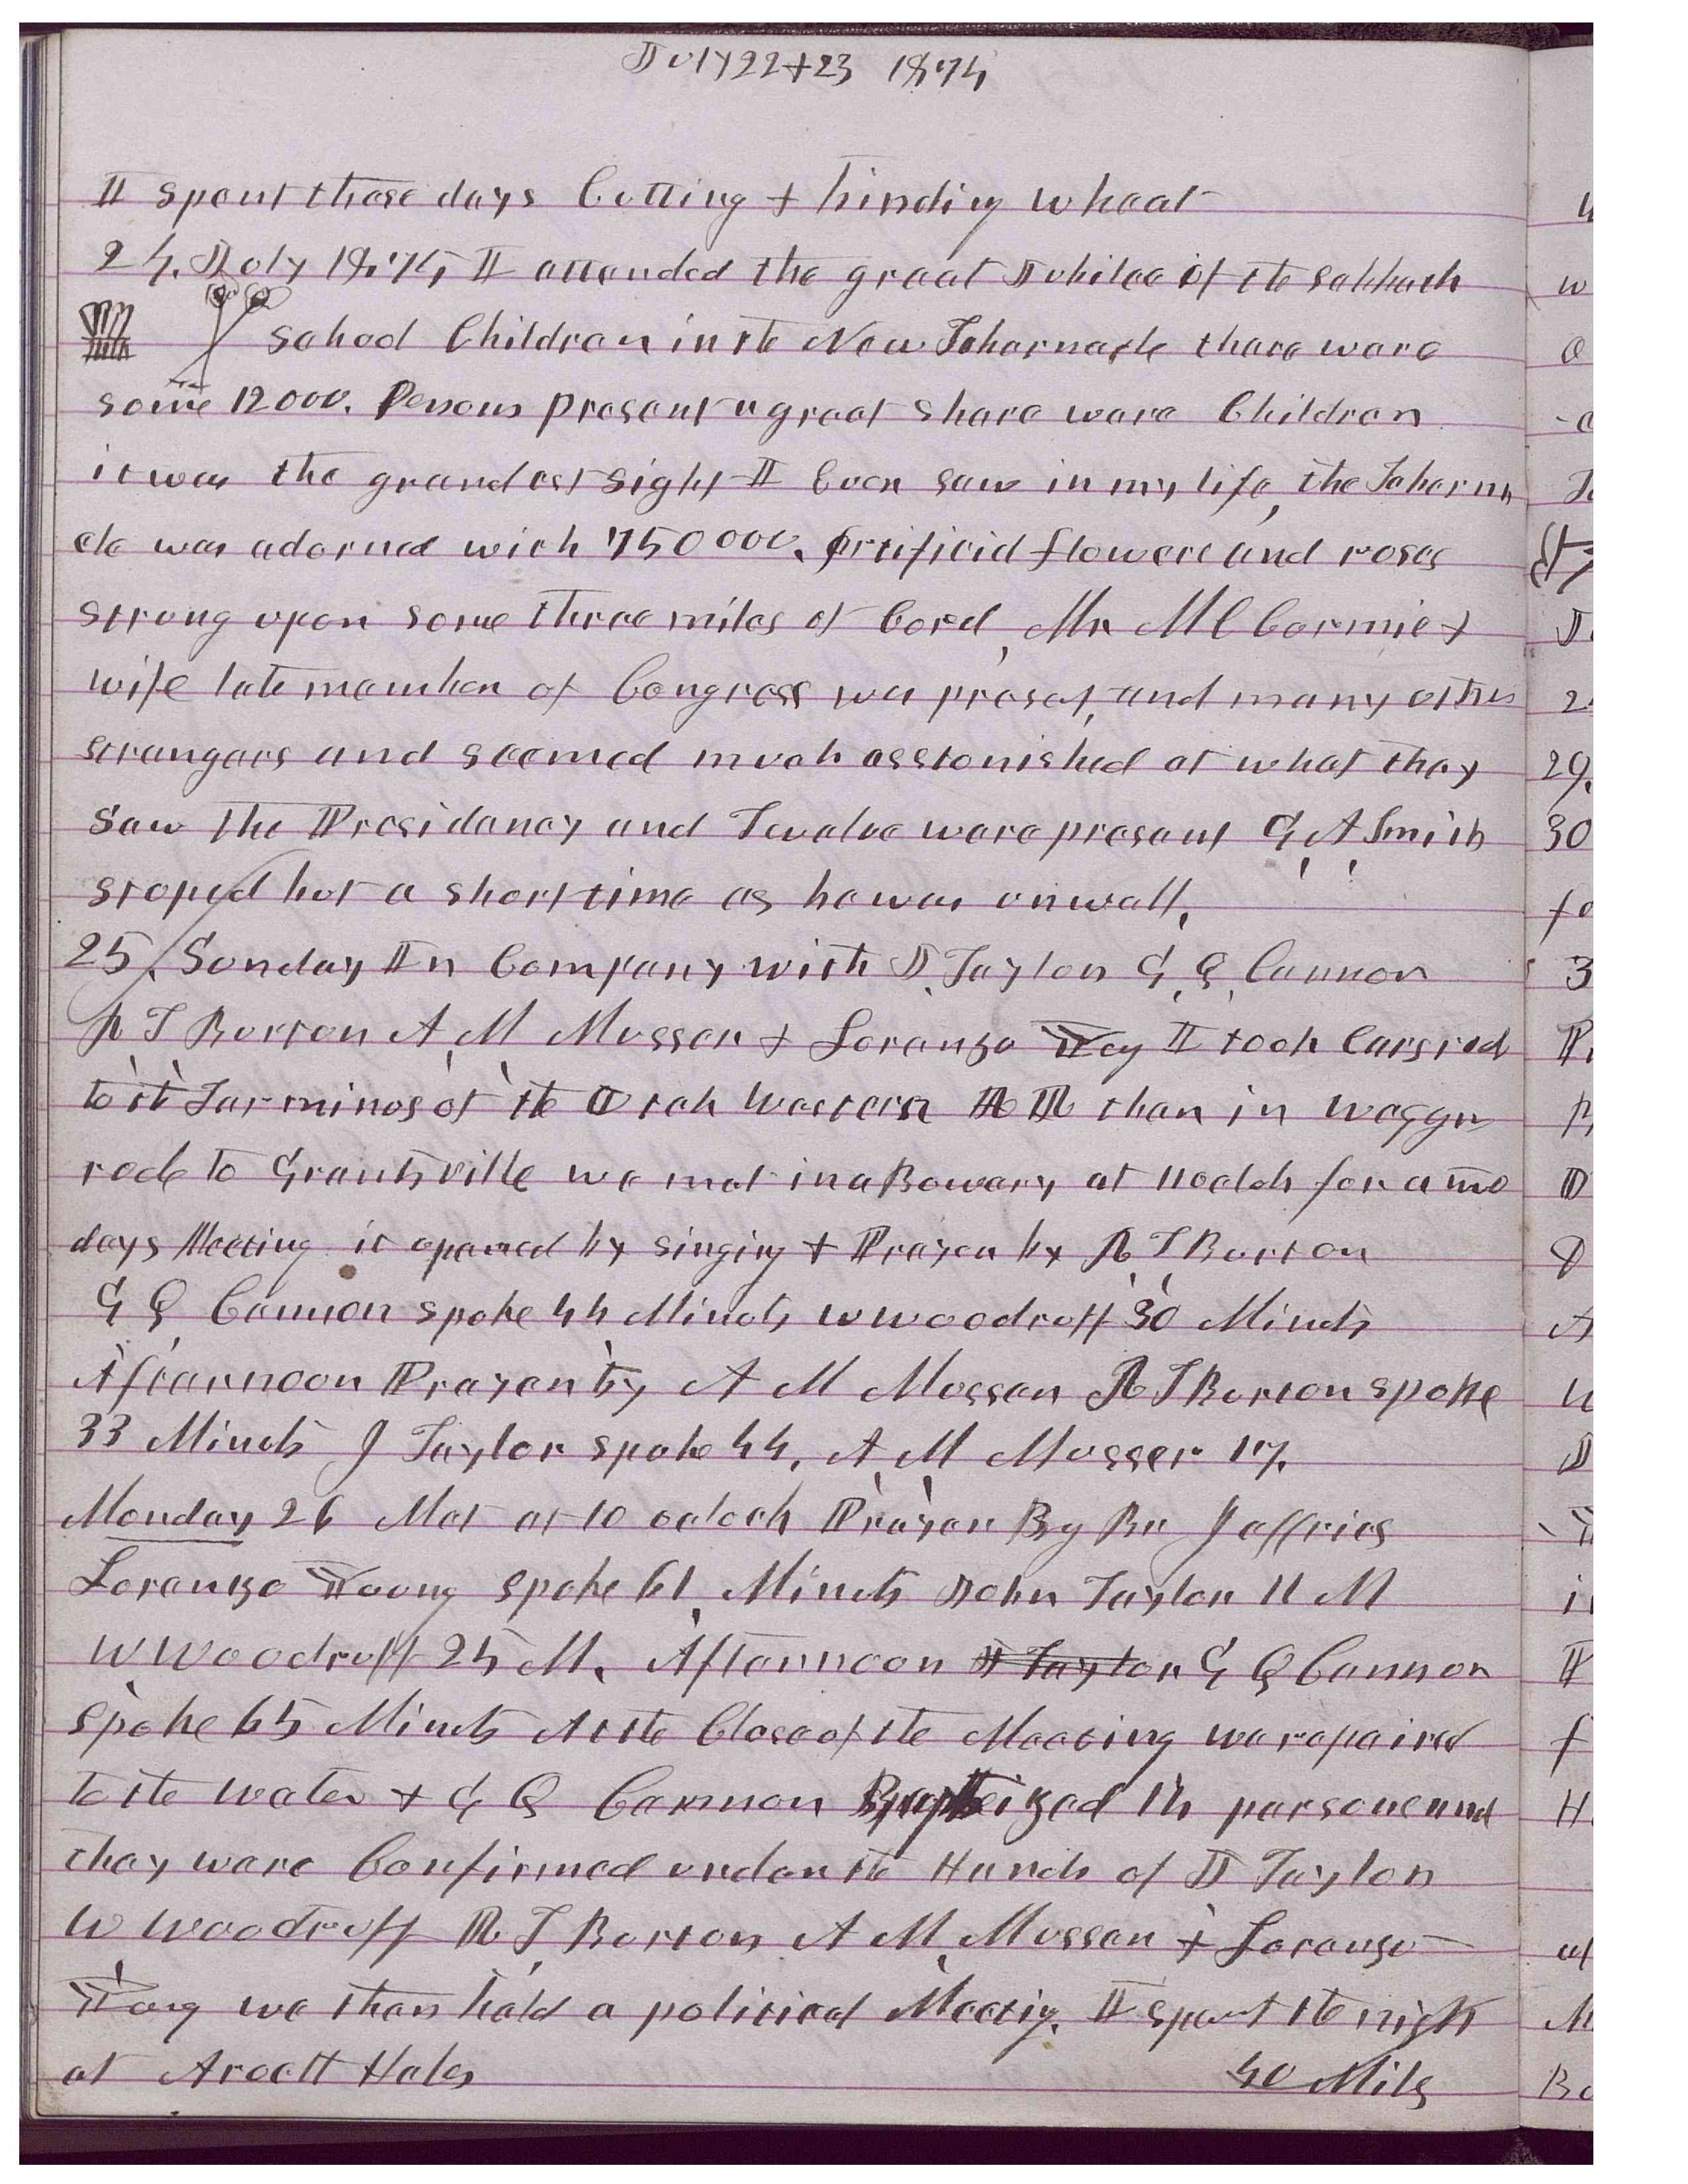 July 22 + 23 1874
I spent these days Cutting & binding wheat
24. July 1874, I attended the great Jubilee of the Sabbath
School Children in the New Tabernacle there were
some 12000. Persons present a great share were Children
it was the grandest sight I Ever saw in my life, the Taberna
cle was adorned with 750000. Artificial flowers and roses
strung upon some three miles of Cord, Mr McCormic &
wife late member of Congress was present, and many others
strangers and seemed much asstonished at what they
saw the Presidency and Twelve were present G, A, Smith
stoped but a short time as he was unwell,
25, Sunday In Company with J. Taylor G, Q, Cannon
R T Burton A, M Musser & Loranzo Yog I took Cars rod
to the Terminos of the Utah Western RR then in waggn
rode to Grantsville we met in a Bowery at 11 oclok for a two
days Meeting it opened by singing & Prayer by R T Burton
G Q Cannon spoke 44 Minuts W Woodruff 30 Minuts
Afternoon Prayer by A M Musser R T Burton spoke
33 Minuts J Taylor spoke 44, A M Musser 17.
Monday 26 Met at 10 oclock Prayer By Br Jeffries
Loranzo Young spoke 61, Minuts John Taylor 11 M
W Woodruff 25 M. Afternoon J Taylor G Q Cannon
spoke 65 Minuts At the Close of the Meeting we repaired
to the water & G Q Cannon Baptized 14 persons and
they were Confirmed under the Hands of J Taylor
W Woodruff R T Burton A M Musser & Loranzo
Yong we then held a political Meetig. I spent the night
at Aroett Hales 40 Miles
29.
30